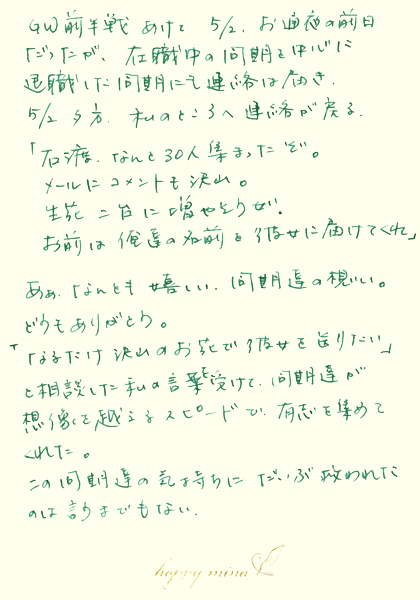 GW前半戦 あけて 5/2、お通夜の前日
だったが、在職中の同期を中心に
退職した同期にも連絡は届き、
5/2 夕方、私のところへ連絡が戻る。
「石渡、なんと30人集まったぞ。
メールにコメントも沢山。
生花二台に増やそうぜ。
お前は俺達の名前を彼女に届けてくれ」
ああ、なんとも嬉しい、同期達の想い。
どうもありがとう。
「なるだけ沢山のお花で彼女を送りたい」
と相談した私の言葉を受けて、同期達が
想像を越えるスピードで、有志を集めて
くれた。
この同期達の気持ちに だいぶ救われた
のは言うまでもない。
happy mina